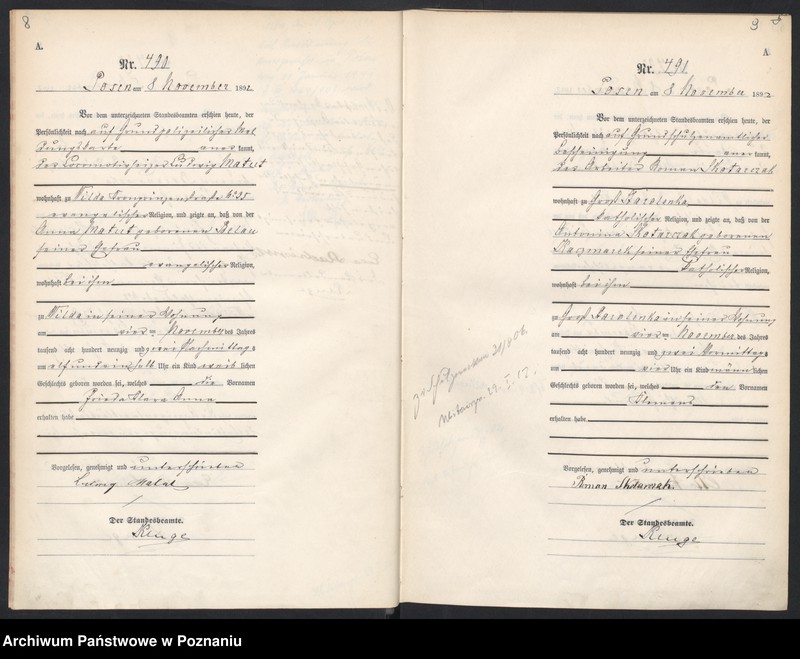 8
A.
Nr. 490
Posen am 8 November 1892.
Vor dem unterzeichneten Standesbeamten erschien heute, der
Persönlichkeit nach auf Grund polizeilicher Mel
dungskarte anerkannt,
der Locomotivheizer Ludwig Matut
wohnhaft zu Wilda Kronprinzenstraße No 35
evangelischer Religion, und zeigte an, daß von der
Anna Matut geborenen Belau
seiner Ehefrau
evangelischer Religion,
wohnhaft bei ihm
zu Wilda in seiner Wohnung
am vierten November des Jahres
tausend acht hundert neunzig und zwei Nachmittags
um elf und einhalb Uhr ein Kind weiblichen
Geschlechts geboren worden sei, welches die Vornamen
Frieda Klara Anna
erhalten habe
Vorgelesen, genehmigt und unterschrieben
Ludwig Matut
Der Standesbeamte.
9
A
Nr. 491
Posen am 8 November 1892
Vor dem unterzeichneten Standesbeamten erschien heute, der
Persönlichkeit nach auf Grund schutzenamtlicher
Bescheinigung anerkannt,
der Arbeiter Roman Skotarczak
wohnhaft zu Groß Starolenka
katholischer Religion, und zeigte an, daß von der
Antonina Skotarczak geborenen
Kaczmarek seiner Ehefrau
katholischer Religion,
wohnhaft bei ihm
zu Groß Starolenka in seiner Wohnung
am vierten November des Jahres
tausend acht hundert neunzig und zwei Vormittags
um vier Uhr ein Kind männlichen
Geschlechts geboren worden sei, welches den Vornamen
Klemens
erhalten habe
Vorgelesen, genehmigt und unterschrieben
Roman Skotarczak
Der Standesbeamte.
Archiwum Państwowe w Poznaniu